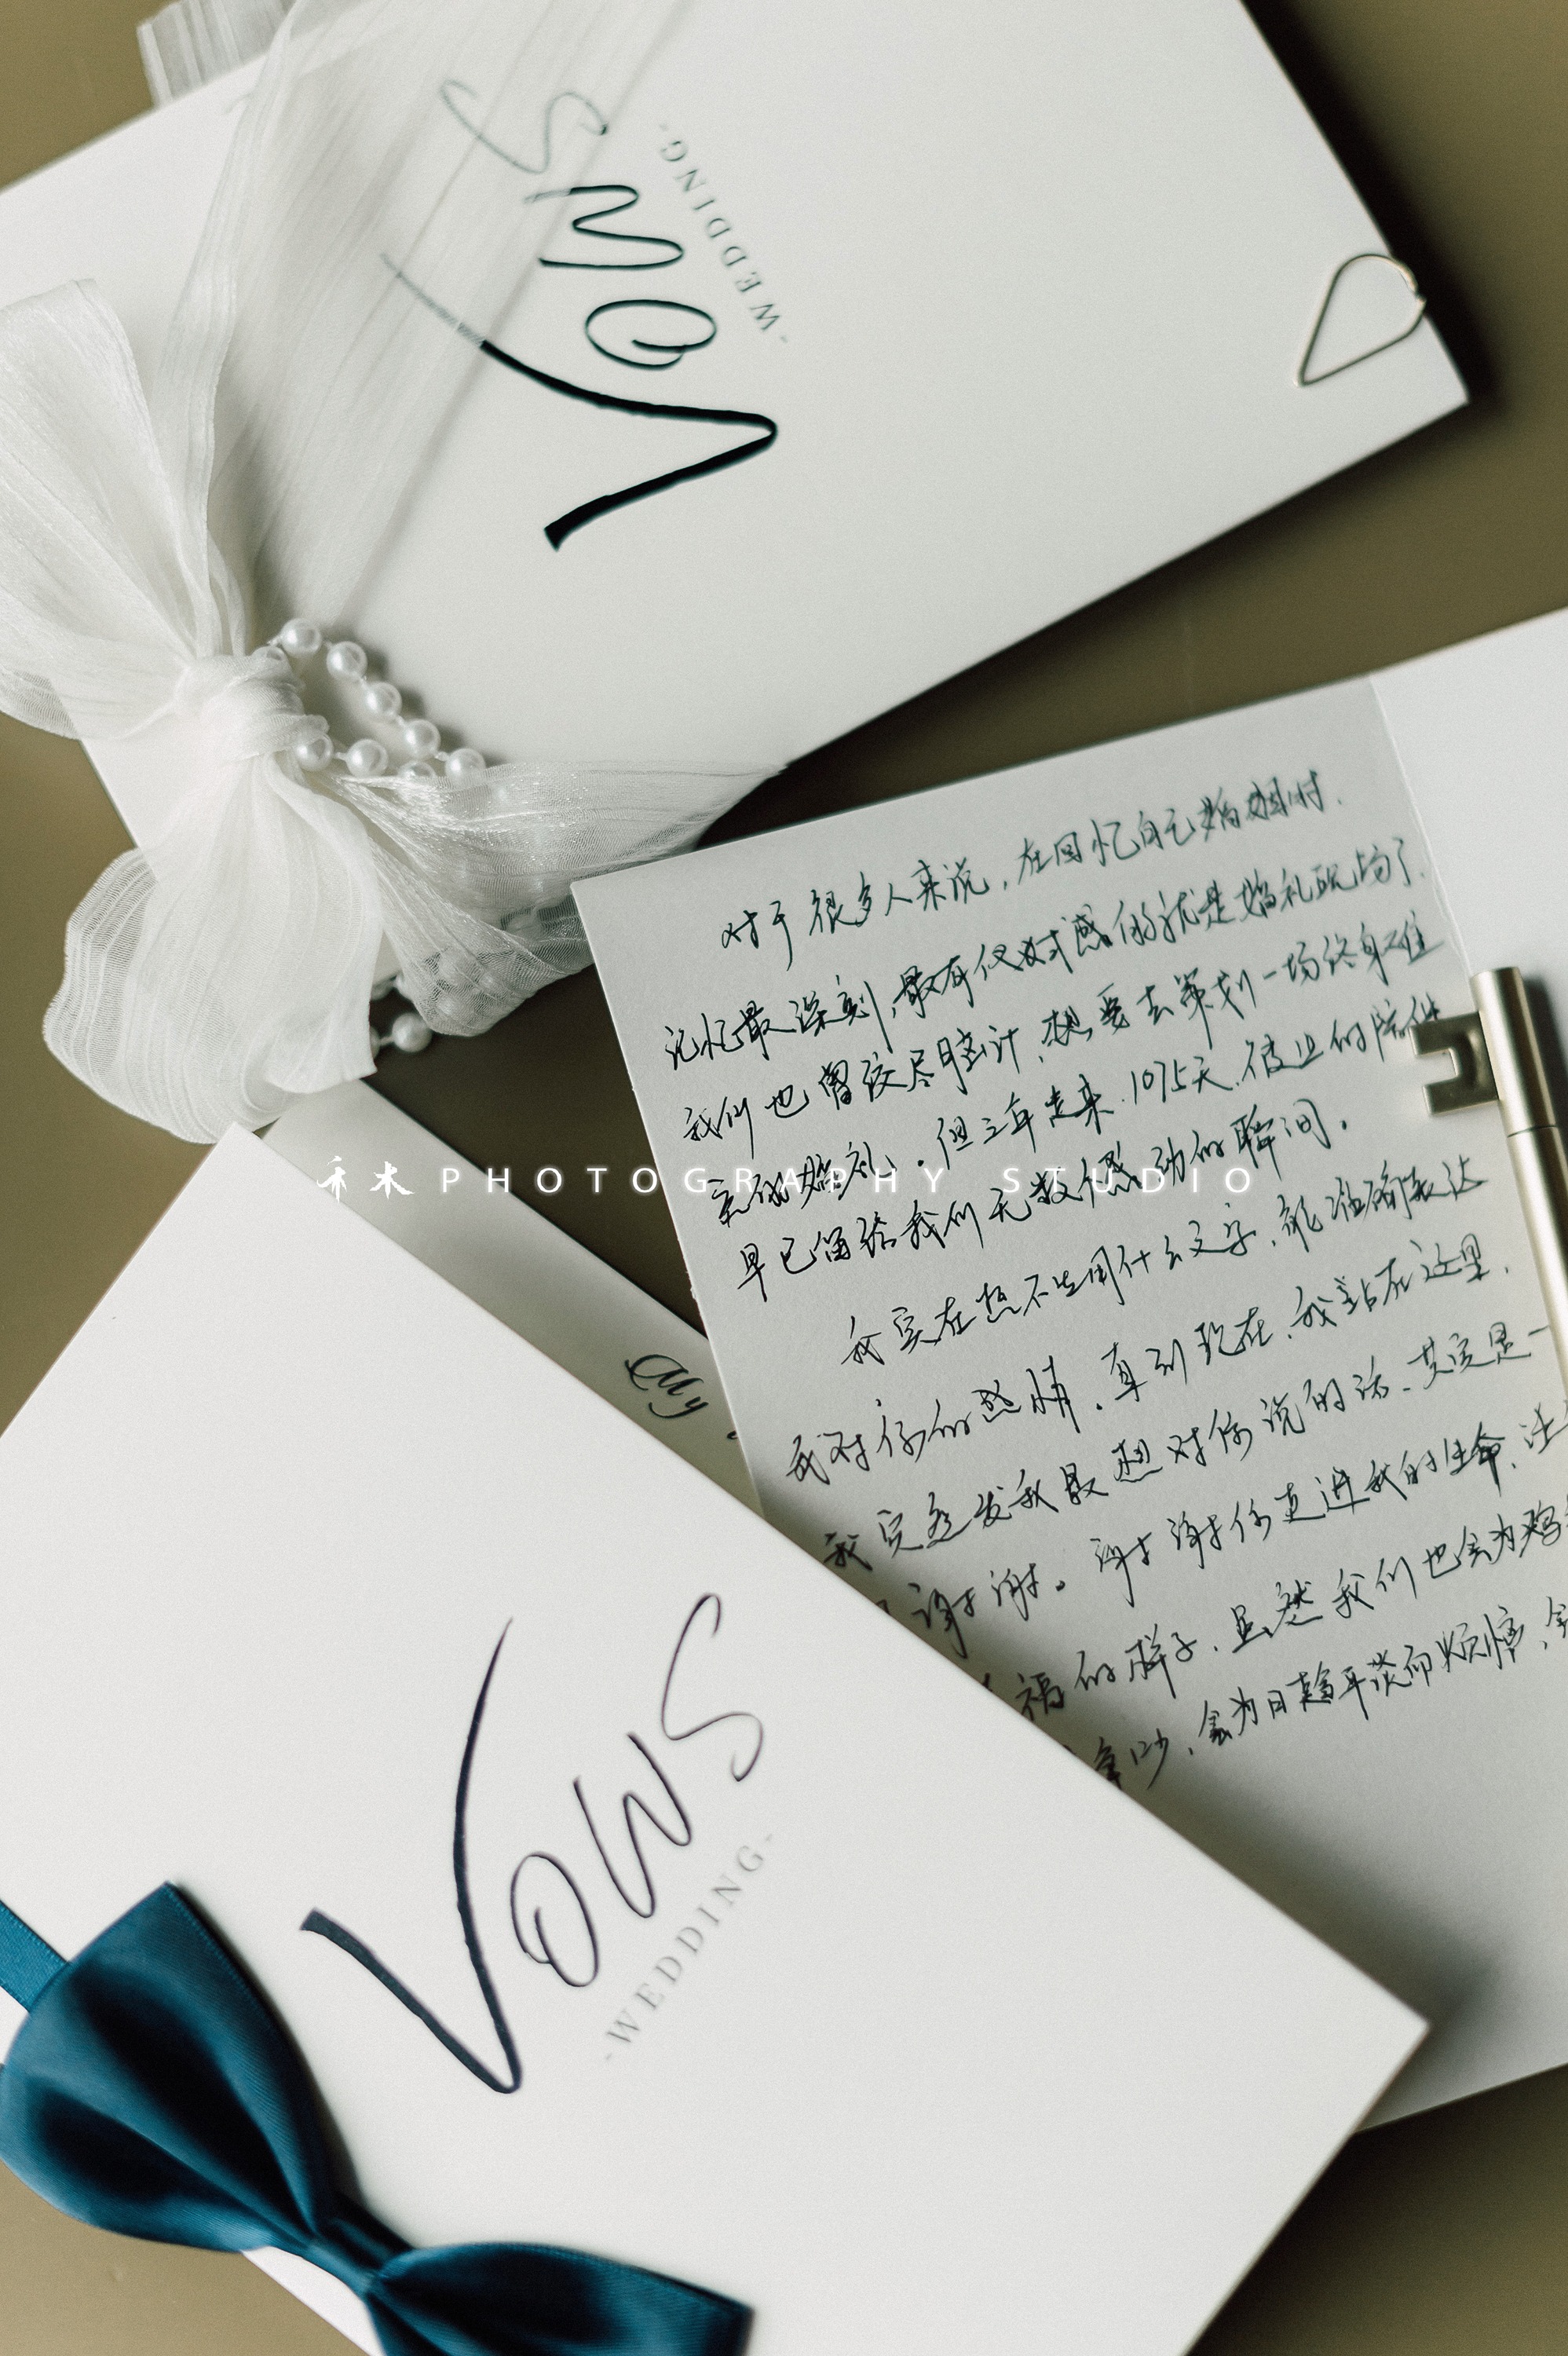 VOWS
-WEDDING-
对于很多人来说，在回忆自己婚姻时、
记忆最深刻,最有仪式感的就是婚礼现场了.
我们也曾绞尽脑汁、想要去策划一场终身难
忘的婚礼.但三年走来.1075天.彼此的陪伴
早已留给我们无数個感动的瞬间。
我实在想不出用什么文字、能准确表达
我对你的感情.直到现在.我站在这里.
我突然发我最想对你说的话、其实是一
谢谢。谢谢你走进我的生命、让
福的样子.虽然我们也会为鸡
争吵、会为日趋平淡而烦恼、会
禾木PHOTOGRAPHY STUDIO
My
VOWS
-WEDDING-